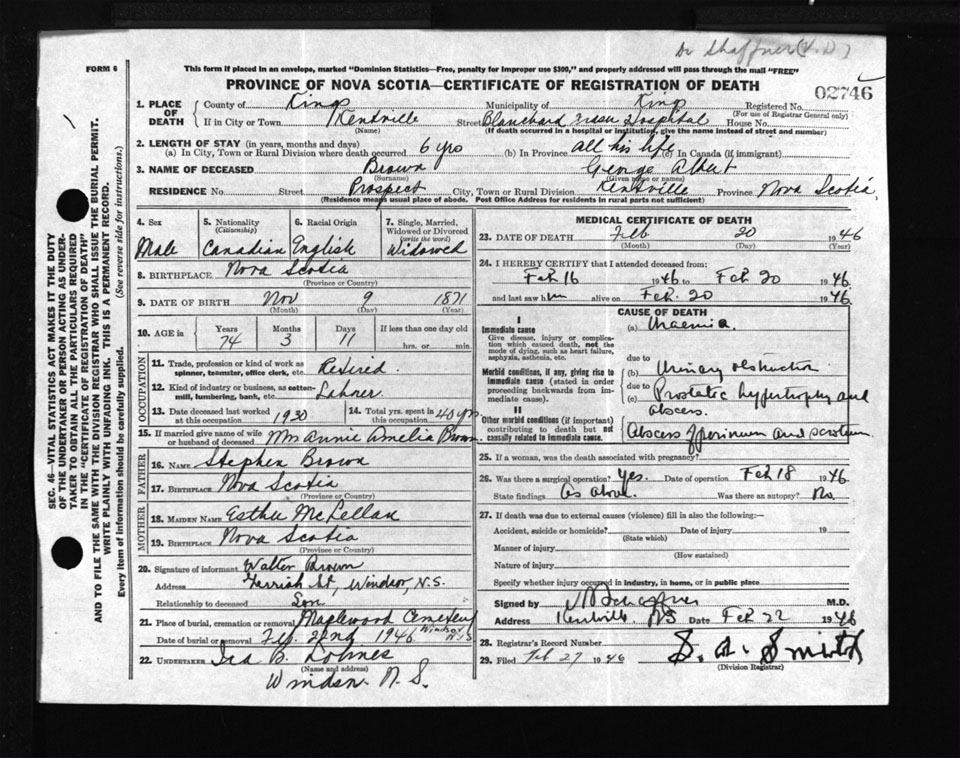 Dr Shaffner (V.D)
FORM 6
This form if placed in an envelope, marked "Dominion Statistics—Free, penalty for improper use $300," and properly addressed will pass through the mail "FREE"
PROVINCE OF NOVA SCOTIA—CERTIFICATE OF REGISTRATION OF DEATH
02746
1. PLACE OF DEATH
County of Kings Municipality of Kings Registered No.
(For use of Registrar General only)
If in City or Town Kentville Street Blanchard Hospital House No.
(Name) (If death occurred in a hospital or institution, give the name instead of street and number)
2. LENGTH OF STAY (in years, months and days)
(a) In City, Town or Rural Division where death occurred 6 yrs (b) In Province all his life (c) In Canada (if immigrant)
3. NAME OF DECEASED Brown George Albert
(Surname) (Given name or names)
RESIDENCE No Street Prospect City, Town or Rural Division Kentville Province Nova Scotia
(Residence means usual place of abode. Post Office Address for residents in rural parts not sufficient)
4. Sex
Male
5. Nationality
(Citizenship)
Canadian
6. Racial Origin
English
7. Single, Married, Widowed or Divorced
(write the word)
Widowed
8. BIRTHPLACE Nova Scotia
(Province or Country)
9. DATE OF BIRTH Nov 9 1871
(Month) (Day) (Year)
10. AGE in Years Months Days If less than one day old
74 3 11 hrs. or min.
OCCUPATION
11. Trade, profession or kind of work as spinner, teamster, office clerk, etc. Retired.
12. Kind of industry or business, as cotton-mill, lumbering, bank, etc. Laborer.
13. Date deceased last worked at this occupation 1930
14. Total yrs. spent in this occupation 40 yrs
15. If married give name of wife or husband of deceased Mrs Annie Amelia Brown
FATHER
16. NAME Stephen Brown
17. BIRTHPLACE Nova Scotia
(Province or Country)
MOTHER
18. MAIDEN NAME Esther McLellan
19. BIRTHPLACE Nova Scotia
(Province or Country)
20. Signature of informant Walter Brown
Address Gerrish St, Windsor, N.S.
Relationship to deceased Son
21. Place of burial, cremation or removal Maplewood Cemetery
Windsor N.S
Date of burial or removal Feb. 22nd 1946
22. UNDERTAKER Ira B. Lohnes
(Name and address)
Windsor N.S.
MEDICAL CERTIFICATE OF DEATH
23. DATE OF DEATH Feb 20 1946
(Month) (Day) (Year)
24. I HEREBY CERTIFY that I attended deceased from:
Feb 16 1946 to Feb 20 1946
and last saw him alive on Feb. 20 1946
CAUSE OF DEATH
I
Immediate cause
Give disease, injury or complication which caused death, not the mode of dying, such as heart failure, asphyxia, asthenia, etc.
(a) Uraemia.
due to
Morbid conditions, if any, giving rise to immediate cause (stated in order proceeding backwards from immediate cause).
(b) Urinary obstruction
due to
(c) Prostatic hypertrophy and abscess.
II
Other morbid conditions (if important) contributing to death but not causally related to immediate cause.
Abscess of perineum and scrotum
25. If a woman, was the death associated with pregnancy?
26. Was there a surgical operation? Yes. Date of operation Feb 18 1946
State findings As above. Was there an autopsy? No.
27. If death was due to external causes (violence) fill in also the following:—
Accident, suicide or homicide? Date of injury 19
(State which)
Manner of injury
(How sustained)
Nature of injury
Specify whether injury occured in industry, in home, or in public place
Signed by M.D.
Address Kentville NS Date Feb 22 1946
28. Registrar's Record Number
29. Filed Feb 27 1946 S. A. Smith
(Division Registrar)
SEC. 46—VITAL STATISTICS ACT MAKES IT THE DUTY
OF THE UNDERTAKER OR PERSON ACTING AS UNDER-
TAKER TO OBTAIN ALL THE PARTICULARS REQUIRED
IN THE "CERTIFICATE OF REGISTRATION OF DEATH"
AND TO FILE THE SAME WITH THE DIVISION REGISTRAR WHO SHALL ISSUE THE BURIAL PERMIT.
WRITE PLAINLY WITH UNFADING INK. THIS IS A PERMANENT RECORD.
Every item of information should be carefully supplied. (See reverse side for instructions.)